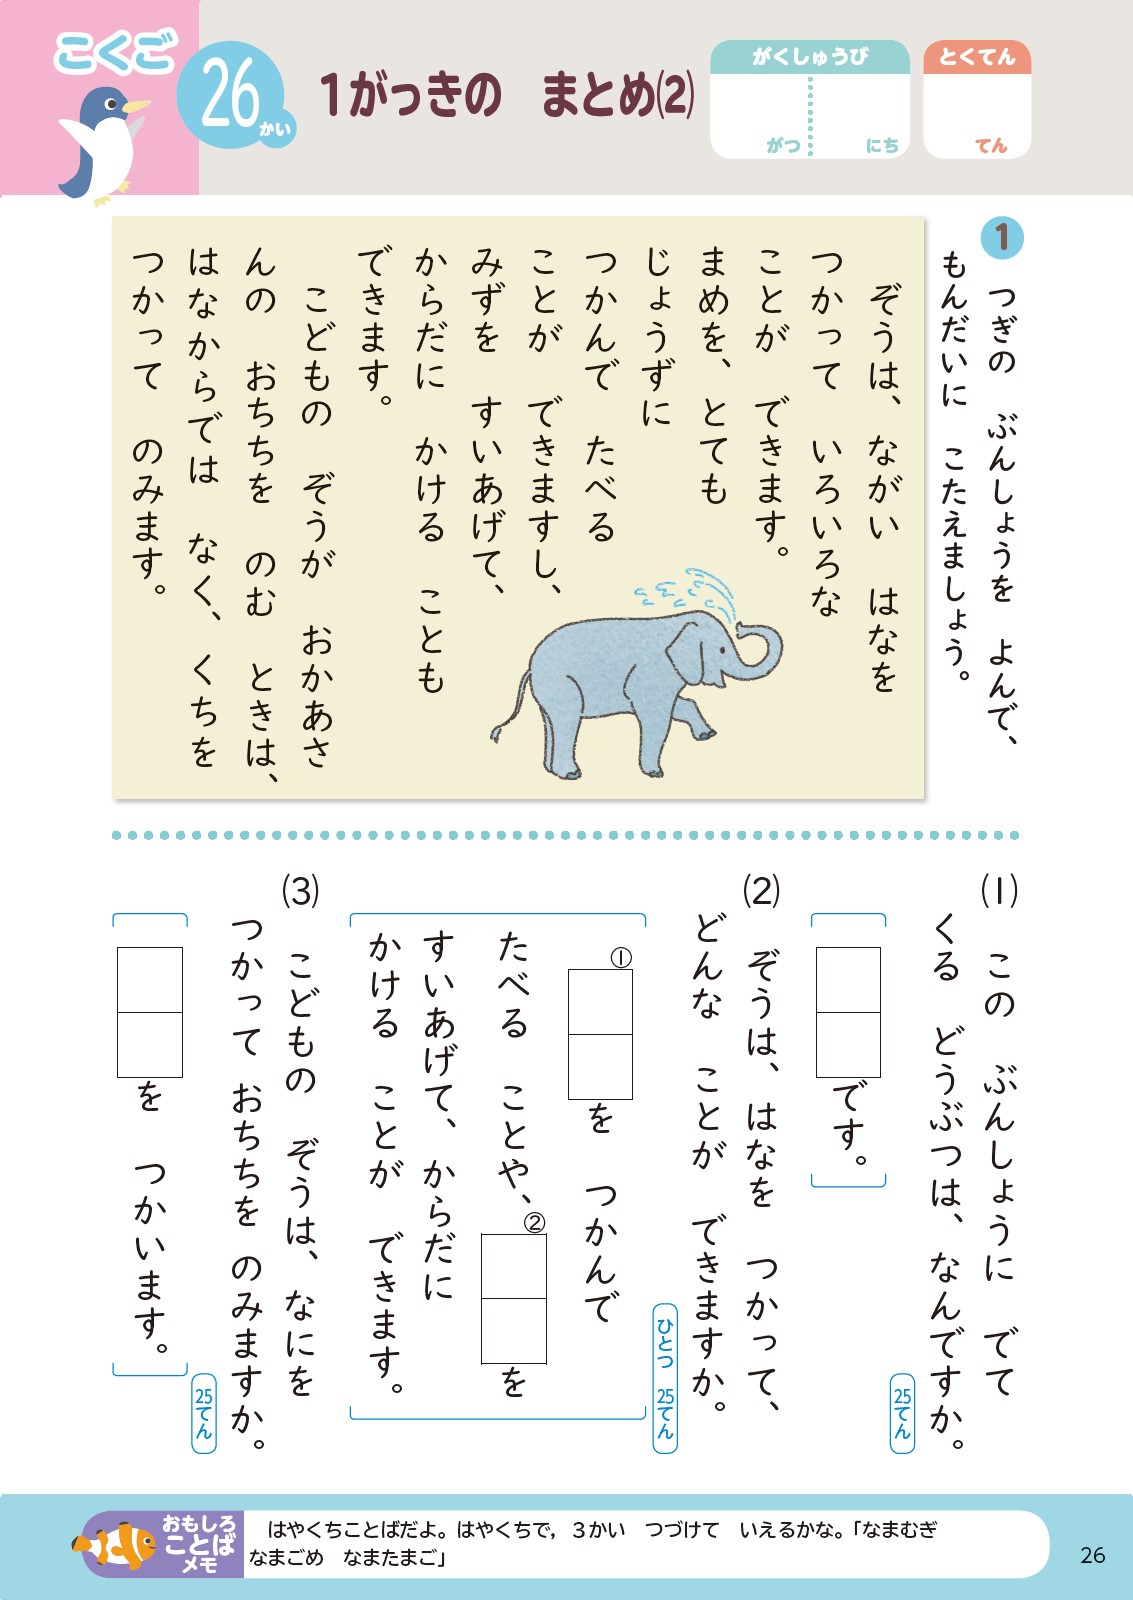 こくご
26かい
1がっきの　まとめ⑵
がくしゅうび
がつ　にち
とくてん
てん
1
つぎの　ぶんしょうを　よんで、
もんだいに　こたえましょう。
ぞうは、ながい　はなを
つかって　いろいろな
ことが　できます。
まめを、とても
じょうずに
つかんで　たべる
ことが　できますし、
みずを　すいあげて、
からだに　かける　ことも
できます。
こどもの　ぞうが　おかあさ
んの　おちちを　のむ　ときは、
はなからでは　なく、くちを
つかって　のみます。
⑴　この　ぶんしょうに　でて
くる　どうぶつは、なんですか。
25てん
です。
⑵　ぞうは、はなを　つかって、
どんな　ことが　できますか。
ひとつ　25てん
①を　つかんで
たべる　ことや、②を
すいあげて、からだに
かける　ことが　できます。
⑶　こどもの　ぞうは、なにを
つかって　おちちを　のみますか。
25てん
を　つかいます。
おもしろ
ことば
メモ
はやくちことばだよ。はやくちで，３かい　つづけて　いえるかな。「なまむぎ
なまごめ　なまたまご」
26